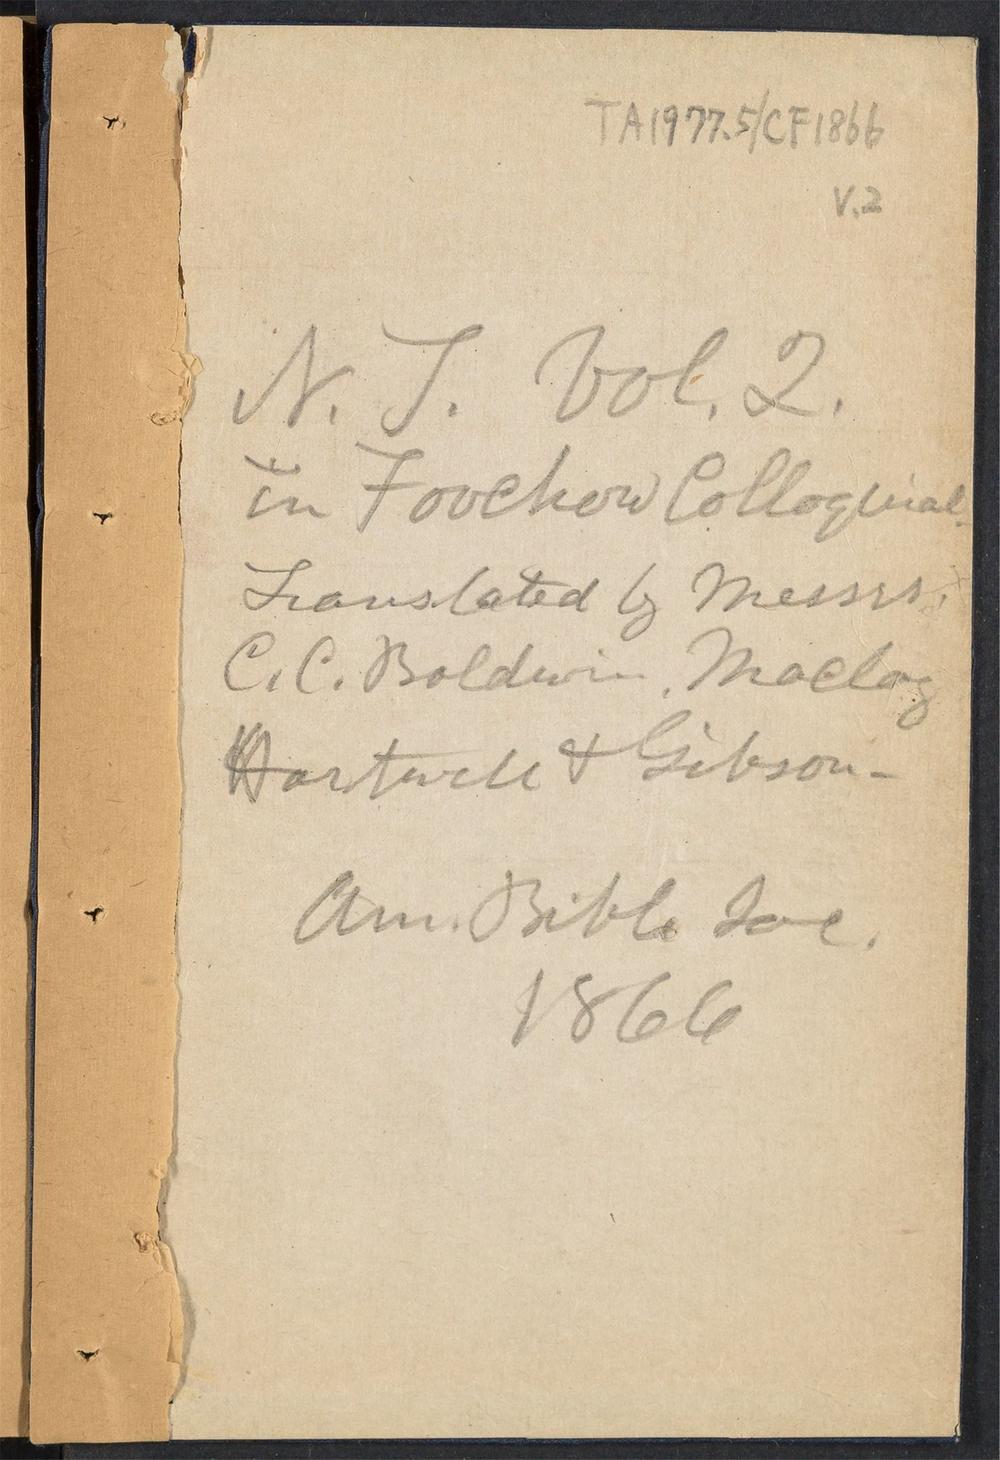 TA1977.5/CF1866
V.2
N. T. Vol. 2.
in Foochow Colloquial.
Translated by Messrs.
C. C. Baldwin, Maclay
Hartwell & Gibson-
Am. Bible Soc.
1866